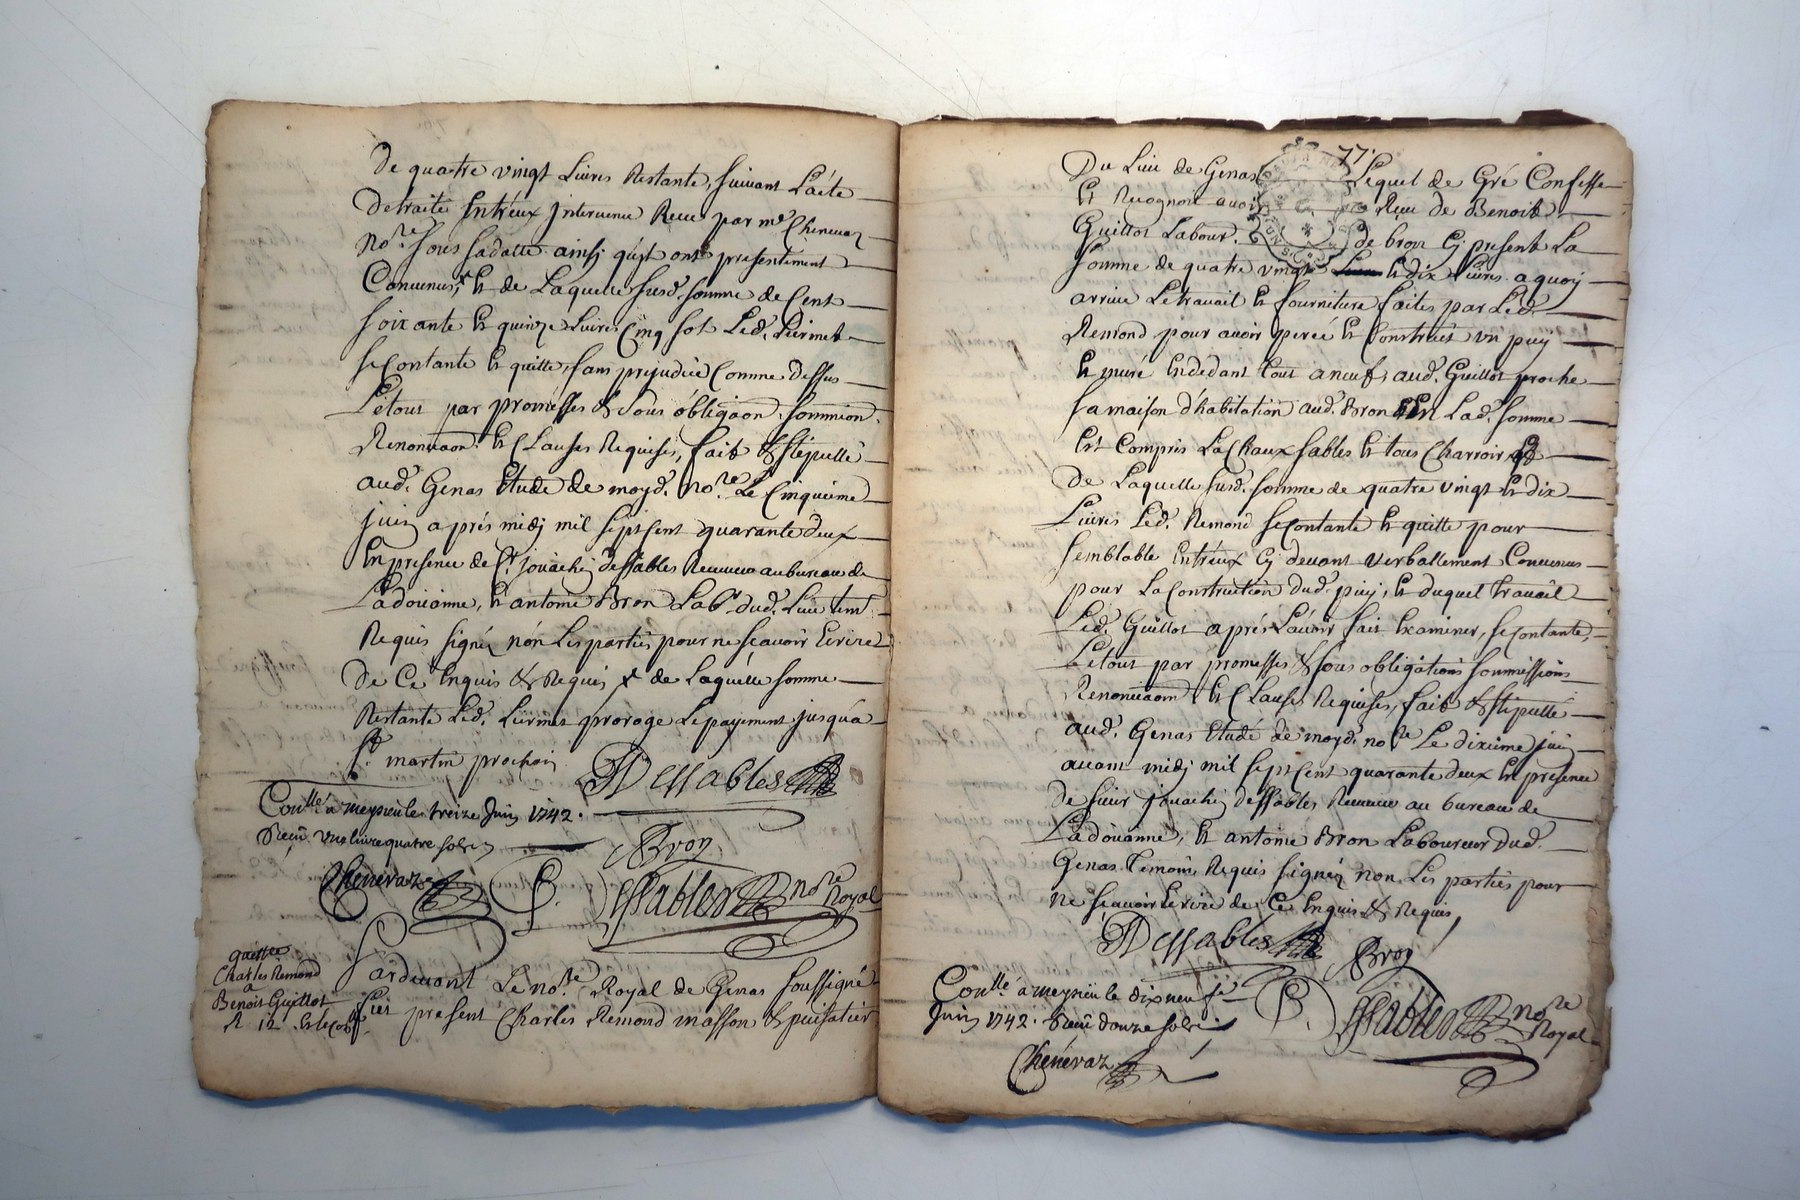 De quatre vingt Livres Restante, suivant L'acte
de traité Entréux Intervenu Recu par me. Chenevaz
Nore. sous sa datte ainsy qu'ils ont presentement
Convenus, + Et de Laquelle susd. somme de Cent
soixante Et quinze Livres Cinq sol Led.
se Contante Et quitte, sans prejudice Comme dessus
Letout par promésses & sous obligaon. soumnion.
Renonciaon. Et Clauses Requises, fait & stipullé
aud. Genas Etude de moyd. nore. Le Cinquieme
juin aprés midj mil sept Cent quarante deux
En presence de sr. joüachin dessables Receveur au bureau de
La doüanne, Et antoine Bron Labr. dud. Lieu tem.
Requis signéz nón Les parties pour ne scavoir Ecrire
de Ce Enquis & Requis + de Laquelle somme
Restante Led. proroge Le payement jusqu'a
st. martin prochain
JDessables
Conllé. a meysieu le treize Juin 1742.
Recû une livre quatre sols
ABron
Chenévaz
P. Essables nore. Royal
quittce
Charles Remond
a
Benoit Guillot
R 12 s
Pardevant Le nore. Royal de Genas soussigné
fut present Charles Remond masson & puisatier
77.
Du Lieu de Genas Lequel de Gré Confesse
Et Recognoit avoir Recu de Benoit
Guillot Labour. de bron Cy present La
somme de quatre vingt Et dix Livres a quoy
arrive Le travail Et fourniture faites par Led.
Remond pour avoir percé Et Construit un puy
Et muré Endedant tout aneuf aud. Guillot proche
sa maison d'habitation aud. Bron En Lad. somme
Est Compris La Chaux sables Et tous Charroir
De Laquelle susd. somme de quatre vingt Et dix
Livres Led. Remond se Contante Et quitte pour
semblable Entréux Cy devant verballement Convenus
pour La Construction dud. puy, Et duquel travail
Led. Guillot aprés L'avoir fait Examiner, se Contante,
Letout par promesses & sous obligations soumissions
Renonciaon. Et Clauses Requises, fait & stipullé
aud. Genas Etude de moyd. nore. Le dixieme juin
avant midj mil sept Cent quarante deux En presence
de sieur joüachin dessables Receveur au bureau de
La doüanne, Et antoine Bron Laboureur dud.
Genas Témoins Requis signéz non Les parties pour
ne scavoir Ecrire de Ce Enquis & Requis,
JDessables
ABron
Conllé. a meysieu le dix neufe.
Juin 1742. Recû douze sols
P. Essables nore. Royal
Chenévaz